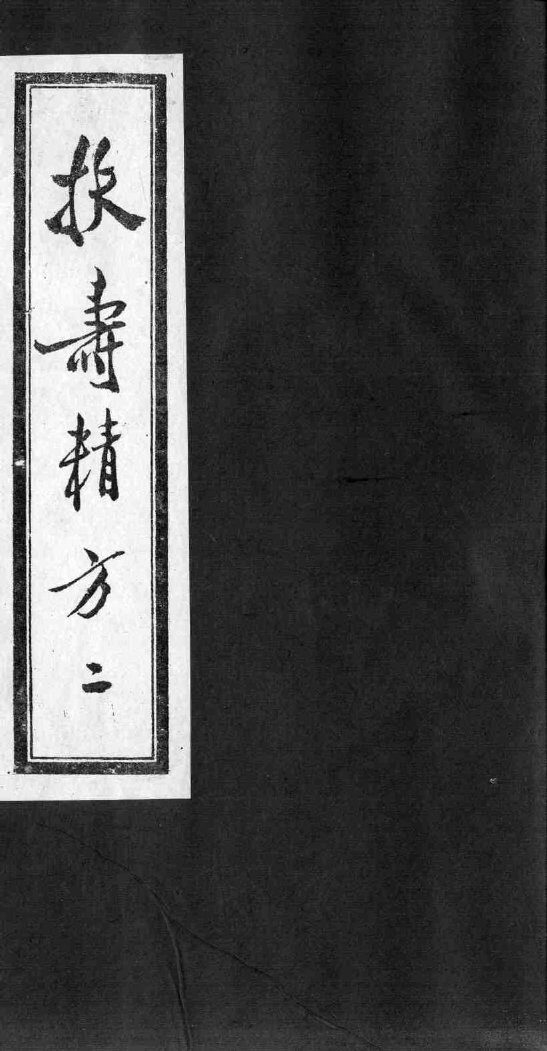 扶壽精方二